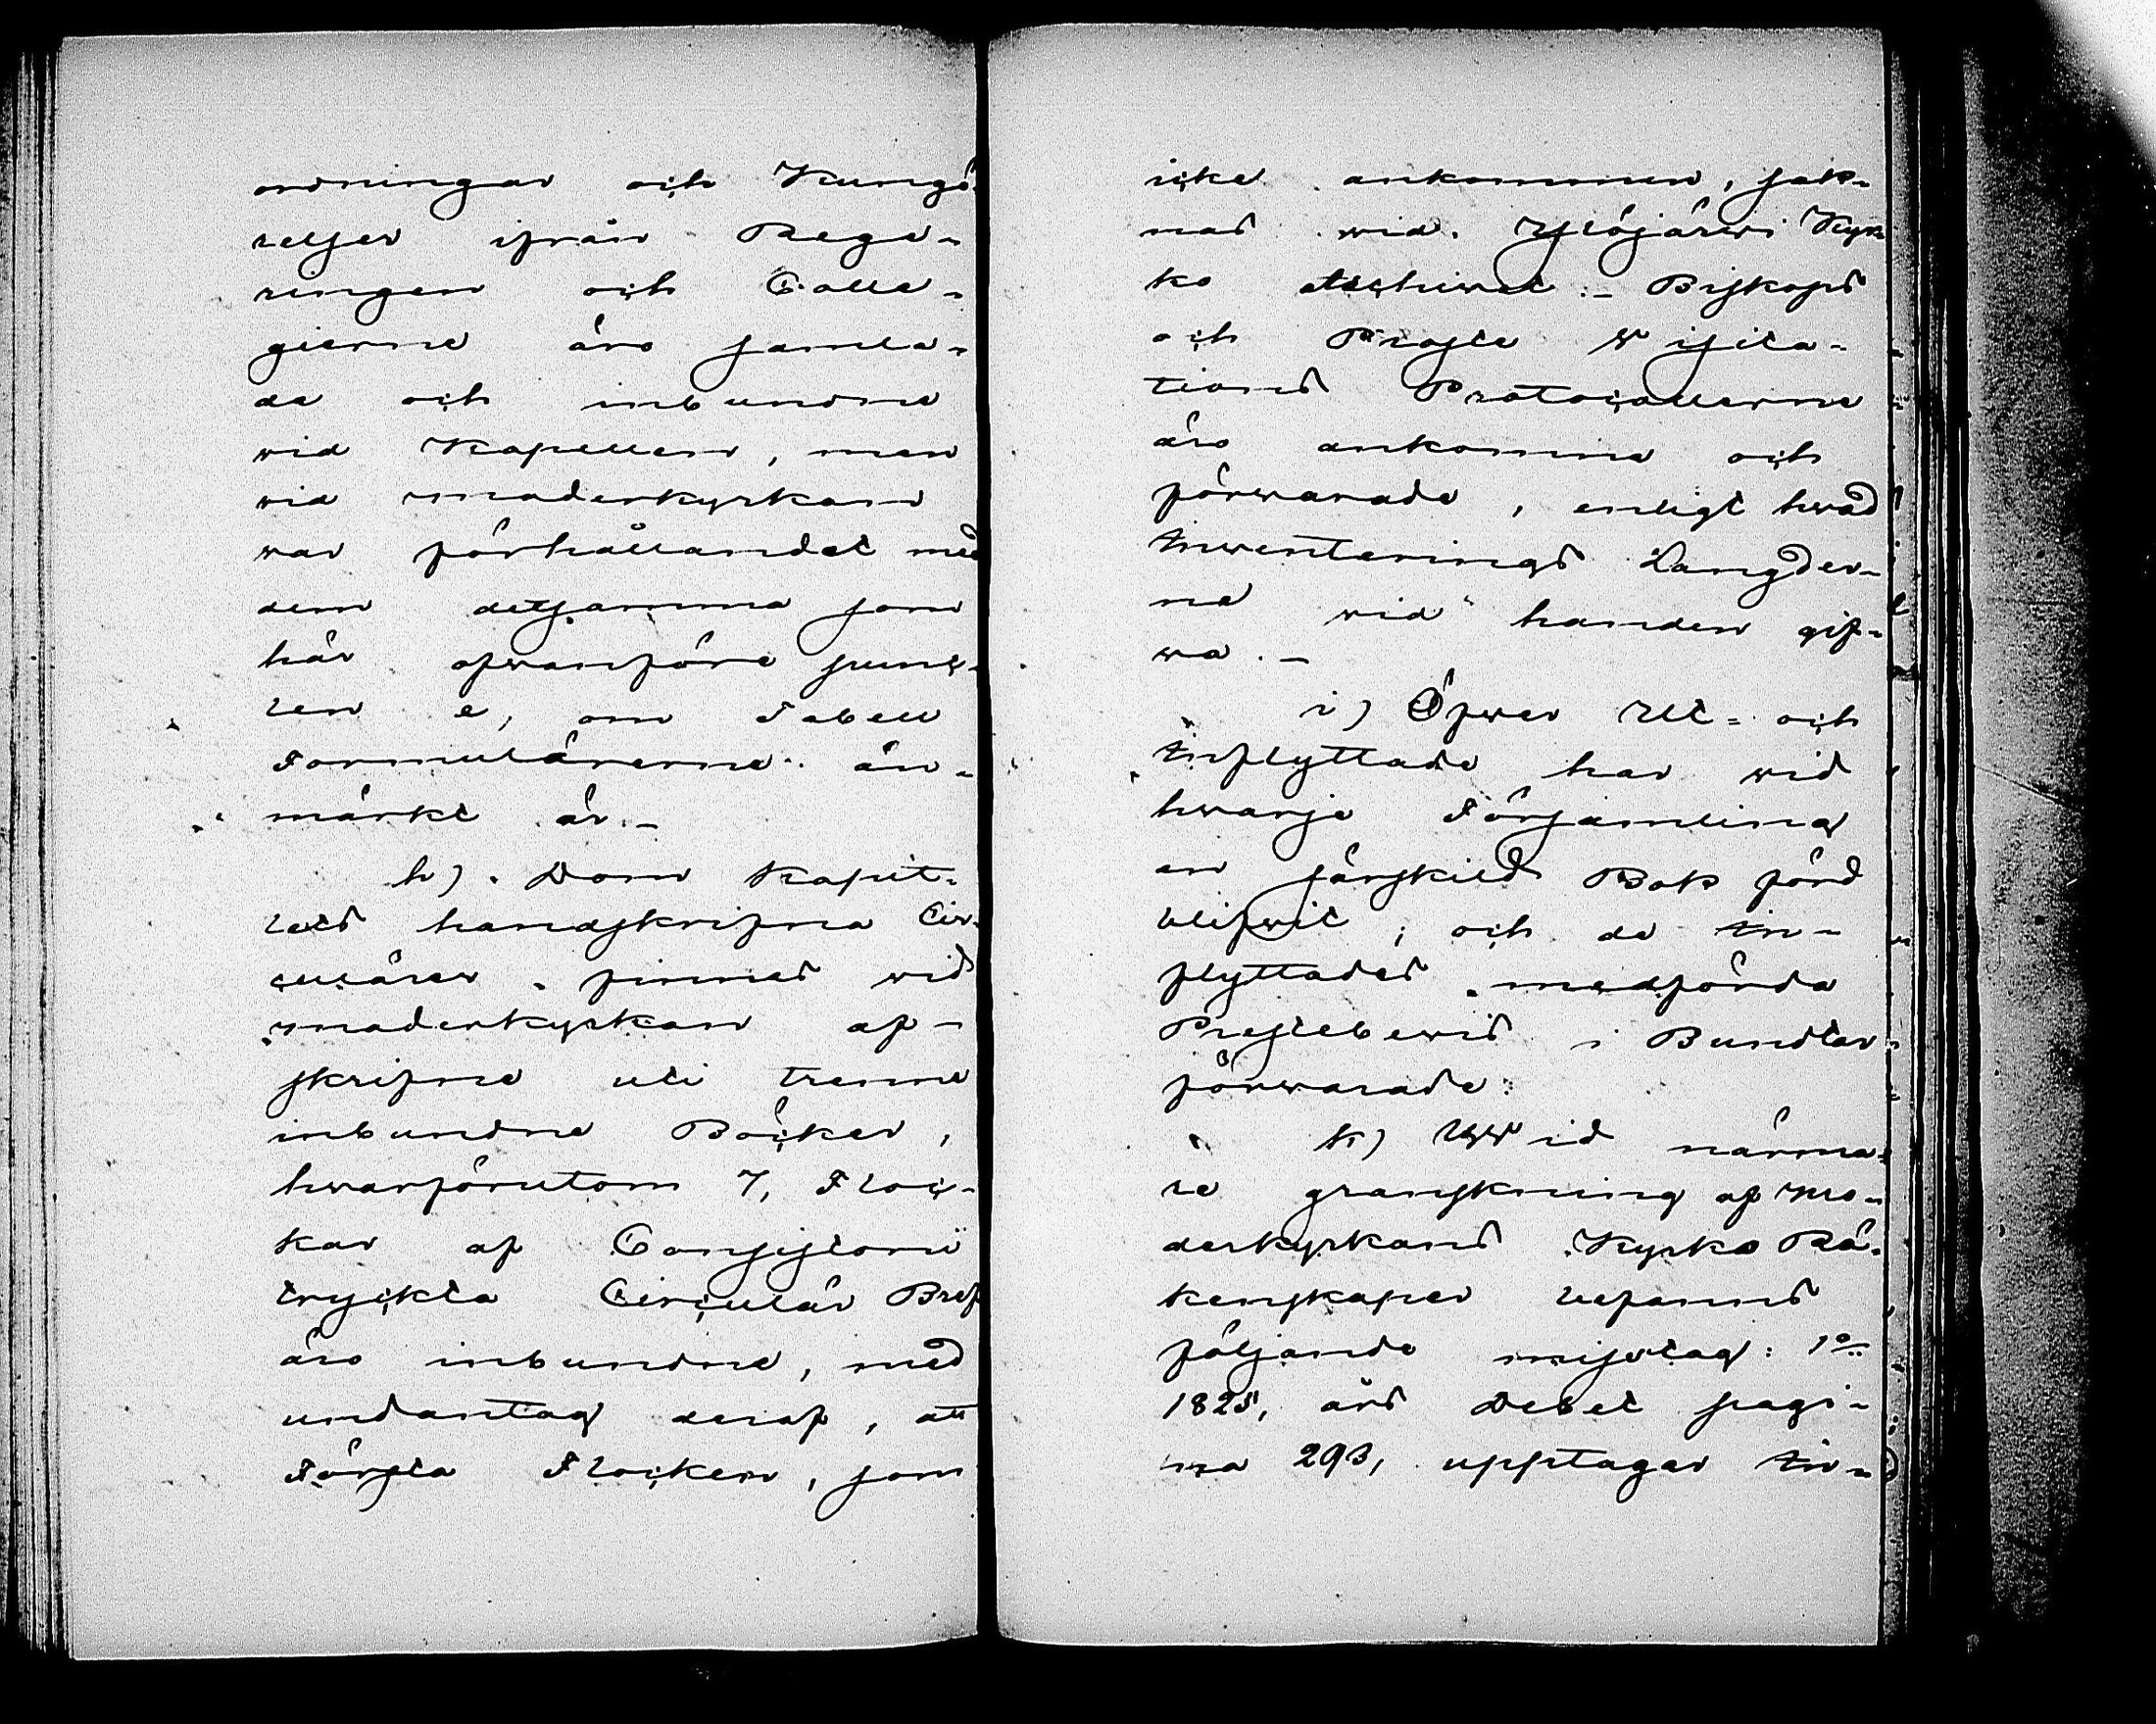 ordningar och Kungö-
relser ifrån Rege-
ringen och Colle-
gierne äro samla-
de och inbundne
wid Kapellen, men
wid moderkyrkan
war förhållandet med
dem detsamma som
här ofwanföre punc-
ten e, om Tabell
Formulärerne an-
märkt är. -
h) Dom Kapit-
lets handskrifna Cir-
culärer finnes wid
moderkyrkan af-
skrifne uti trenne
inbundne Böcker,
hwarförutom 7, Floc-
kar af Consistorii
tryckta Circulär Bref
äro inbundne, med
undantag deraf, att
Första Flocken, som
icke ankommen, sak-
nas wid Ylöjärwi Kyr-
ko Archivet. - Biskops
och Proste Visita-
tions Protocollerne
äro ankomne och
förwarade, enligt hwad
Inventerings Längder-
ne wid handen gif-
wa. -
i) Öfwer Ut- och
Inflyttade har wid
hwarje Församling
en särskild Bok förd
blifwit; och de In-
flyttades medförda
Prestebewis i Bundtar
förwarade.
k) Wid närma-
re granskning af Mo-
derkyrkans Kyrko Rä-
kenskaper befanns
följande misstag: 1o
1825, års Debet pagi-
na 293, upptager In-